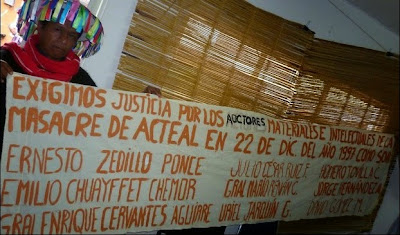 EXIGIMOS JUSTICIA POR LOS AUCTORES MATERIALES E INTELECTUALES DE LA
MASACRE DE ACTEAL EN 22 DE DIC DEL AÑO 1997 COMO SON
ERNESTO ZEDILLO PONCE JULIO CESAR RUIZ F.
EMILIO CHUAYFFET CHEMOR GRAL MARIO JORGE
GRAL ENRIQUE CERVANTES AGUIRRE URIEL JARQUIN G. DAVID GOMEZ